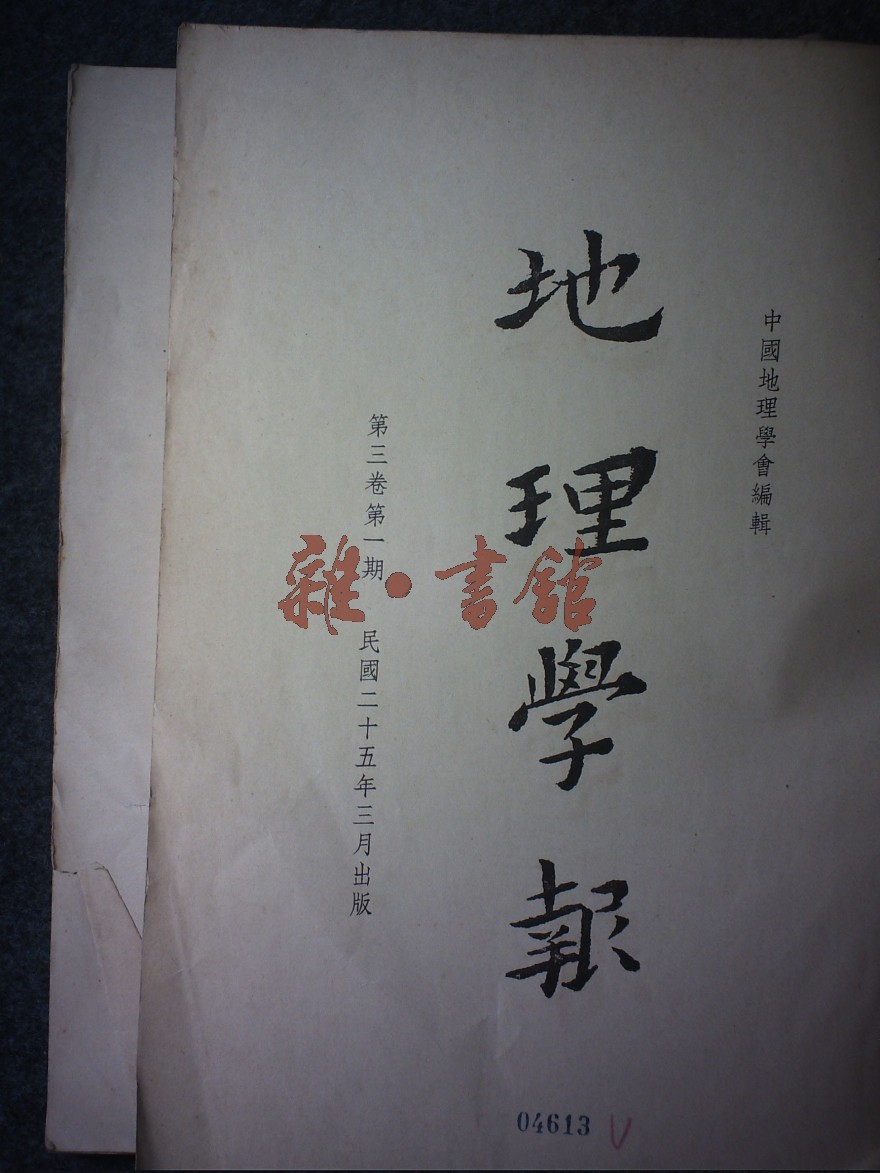 中國地理學會編輯
地理學報
第三卷第一期 民國二十五年三月出版
雜·書館
04613 V